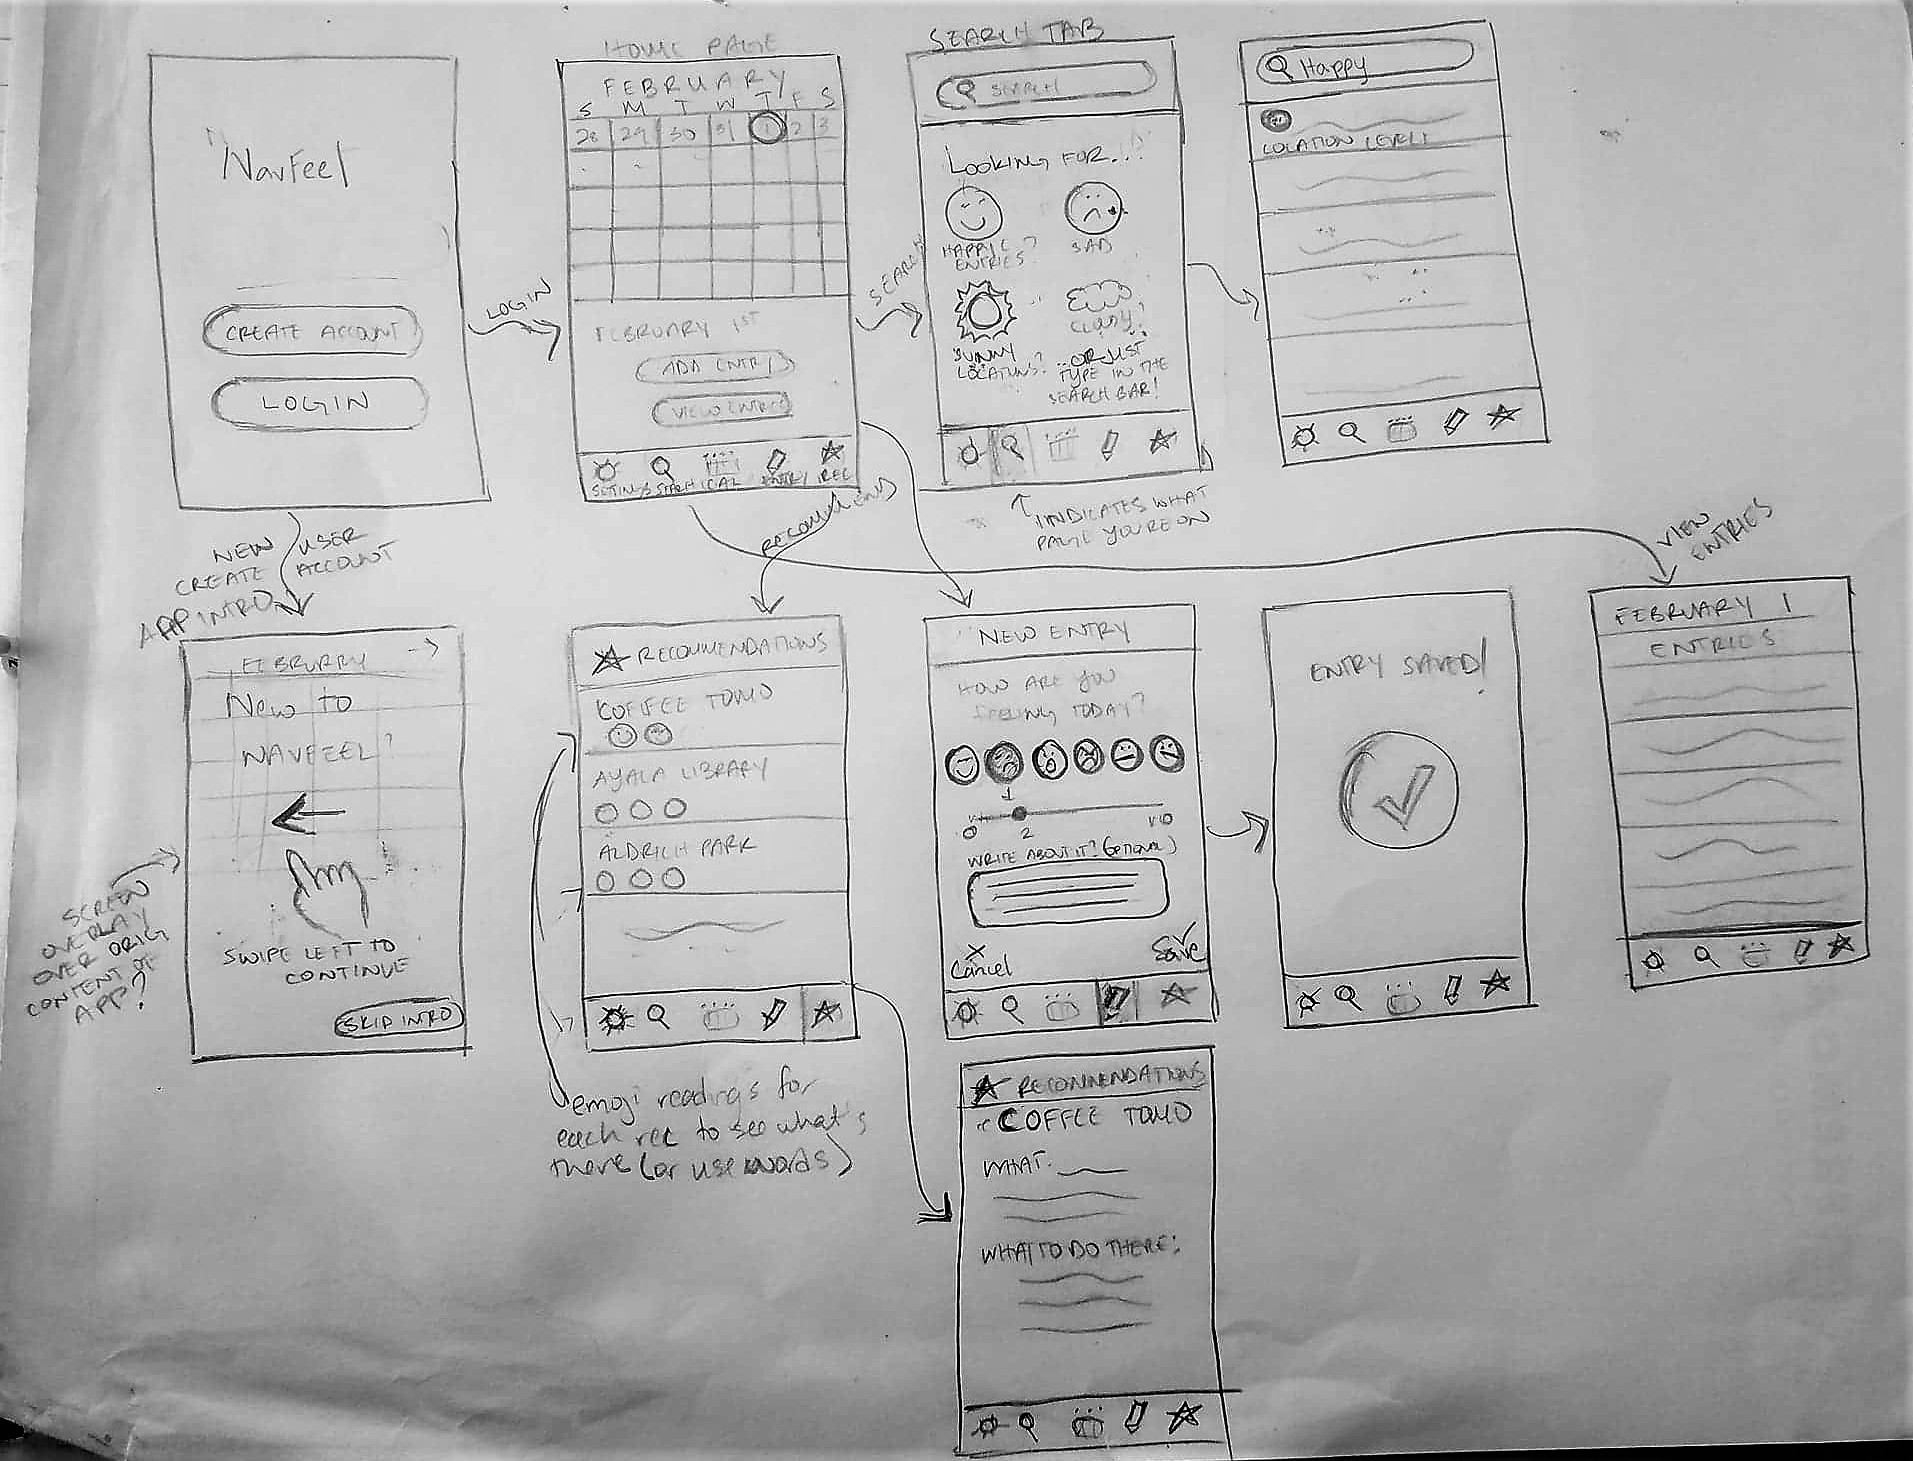 NavFeel
CREATE ACCOUNT
LOGIN
LOGIN
HOME PAGE
FEBRUARY
S M T W T F S
28 29 30 31 1 2 3
FEBRUARY 1ST
ADD ENTRY
VIEW ENTRIES
SETTINGS SEARCH CAL ENTRY REC
SEARCH
SEARCH TAB
SEARCH
LOOKING FOR...
HAPPY
ENTRIES?
SAD
SUNNY
LOCATIONS?
CLOUDY
...OR JUST
TYPE IN THE
SEARCH BAR!
INDICATES WHAT
PAGE YOU'RE ON
Happy
LOCATION LEVEL 1
NEW USER
CREATE ACCOUNT
APP INTRO
RECOMMEND
VIEW
ENTRIES
FEBRURRY
New to
NAVFEEL?
SWIPE LEFT TO
CONTINUE
SKIP INTRO
SCREEN
OVERLAY
OVER ORIG
CONTENT OF
APP?
RECOMMENDATIONS
COFFEE TOMO
AYALA LIBRARY
ALDRICH PARK
emoji readings for
each rec to see what's
there (or use words)
NEW ENTRY
HOW ARE YOU
FEELING TODAY?
0 2 10
WRITE ABOUT IT? (OPTIONAL)
X
Cancel
Save
ENTRY SAVED!
FEBRUARY 1
ENTRIES
RECOMMENDATIONS
COFFEE TOMO
WHAT:
WHAT TO DO THERE: